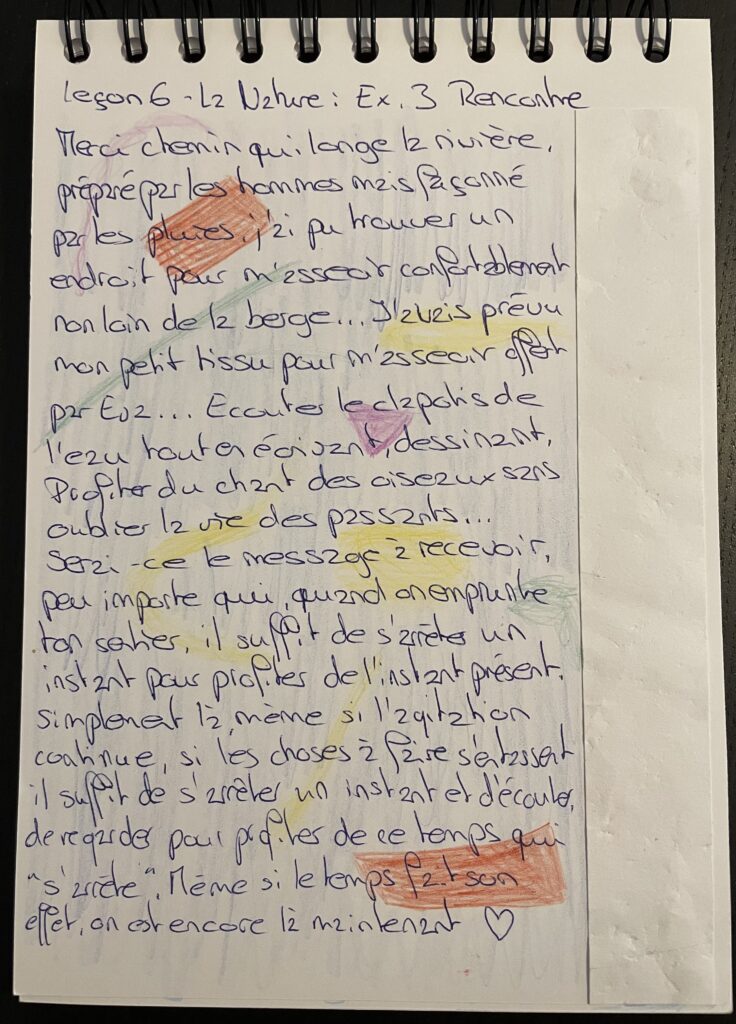 Leçon 6 - La Nature : Ex. 3 Rencontre
Merci chemin qui longe la rivière,
préparé par les hommes mais façonné
par les pluies, j'ai pu trouver un
endroit pour m'asseoir confortablement
non loin de la berge... J'avais prévu
mon petit tissu pour m'asseoir offert
par Eva... Ecouter le clapotis de
l'eau tout en écrivant, dessinant,
Profiter du chant des oiseaux sans
oublier la vie des passants...
Serai-ce le message à recevoir,
peu importe qui, quand on emprunte
ton sentier, il suffit de s'arrêter un
instant pour profiter de l'instant présent.
Simplement là, même si l'agitation
continue, si les choses à faire s'entassent
il suffit de s'arrêter un instant et d'écouter,
de regarder pour profiter de ce temps qui
"s'arrête". Même si le temps fait son
effet, on est encore là maintenant ♡